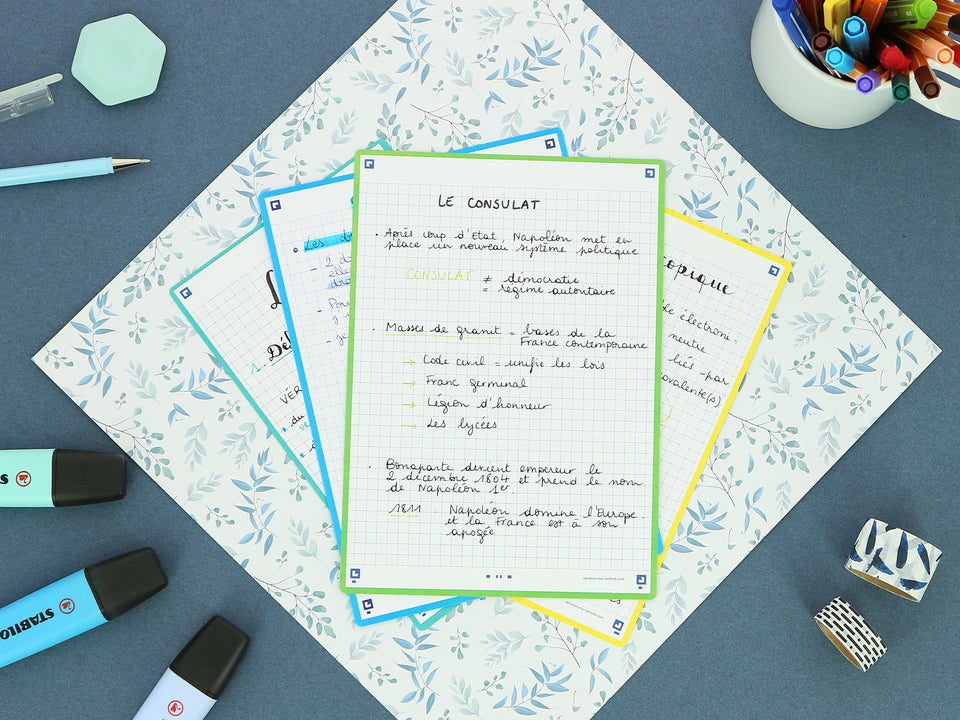 LE CONSULAT
. Après coup d'Etat, Napoléon met en
place un nouveau système politique
CONSULAT ≠ démocratie
= régime autoritaire
. Masses de granit = bases de la
France contemporaine
→ Code civil = unifie les lois
→ Franc germinal
→ Légion d'honneur
→ Les lycées
. Bonaparte devient empereur le
2 décembre 1804 et prend le nom
de Napoléon 1er.
1811 : Napoléon domine l'Europe
et la France est à son
apogée
revision.my-oxford.com
Les
- 2
elle
1. Dé
VÉR
du
opique
électroni-
neutre
liés par
ovalente(s)
revision.my-oxford.com
STABILO